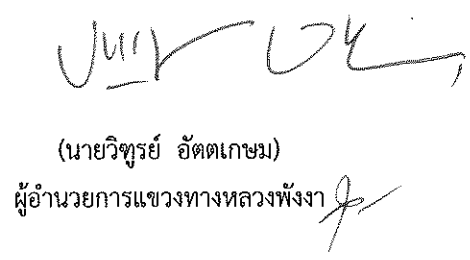 (นายวิฑูรย์ อัตตเกษม)
ผู้อำนวยการแขวงทางหลวงพังงา